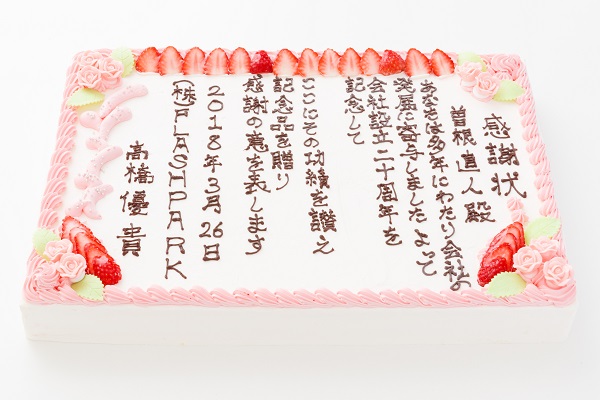 感謝状
曽根直人殿
あなたは多年にわたり会社の
発展に寄与しました よって
会社設立二十周年を
記念して
ここにその功績を讃え
記念品を贈り
感謝の意を表します
2018年3月26日
(株)FLASHPARK
高橋優貴